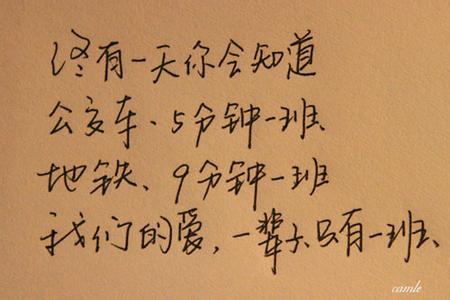 终有一天你会知道
公交车、5分钟一班、
地铁、9分钟一班
我们的爱,一辈子只有一班、
camle